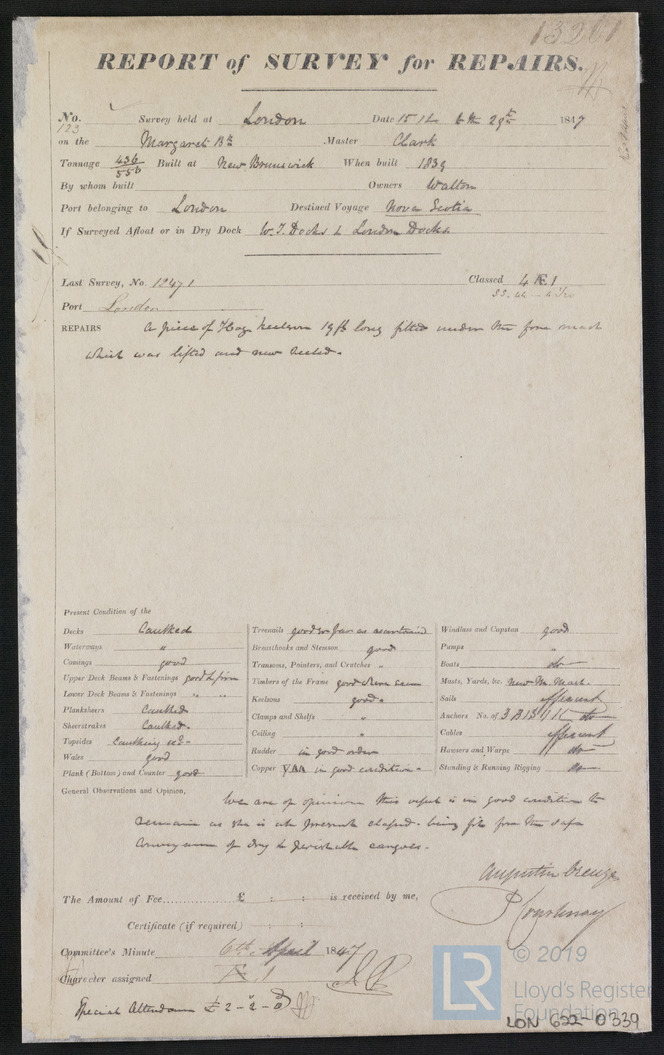 13201
REPORT of SURVEY for REPAIRS.
No. 123 Survey held at London Date 15 1847
on the Margaret Bth Master Clark
Tonnage 436/556 Built at New Brunswick When built 1839
By whom built Owners Walton
Port belonging to London Destined Voyage Nova Scotia
If Surveyed Afloat or in Dry Dock W. I. Docks & London Docks
Last Survey, No. 12471 Classed 4 Æ 1
Port London
REPAIRS a piece of keelson 19 ft long fitted under the fore mast
which was lifted and new heeled.
Present Condition of the
Decks Caulked
Waterways "
Comings good
Upper Deck Beams & Fastenings good & firm
Lower Deck Beams & Fastenings " "
Planksheers Caulked
Sheerstrakes Caulked.
Topsides Caulking
Wales good
Plank (Bottom) and Counter good
Treenails good so far as ascertained
Breasthooks and Stemson good
Transons, Pointers, and Crutches "
Timbers of the Frame good where seen
Keelsons good.
Clamps and Shelfs "
Ceiling "
Rudder in good order
Copper YM in good condition.
Windlass and Capstan good
Pumps "
Boats do
Masts, Yards, &c. New Mn Mast.
Sails efficient
Anchors No. of 3 B 1 S 1 K do
Cables efficient
Hawsers and Warps do
Standing & Running Rigging do
General Observations and Opinion, We are of opinion this vessel is in good condition to
remain as she is at present classed. being fit for the safe
conveyance of dry & perishable cargoes.
Augustin Creuze
P Courtenay
The Amount of Fee £ : : is received by me,
Certificate (if required) : :
Committee's Minute 6th April 1847
Character assigned Æ 1
Special Attendance £ 2 - 2 - 0
LR © 2019
Lloyd's Register
Foundation
LON 622-0339